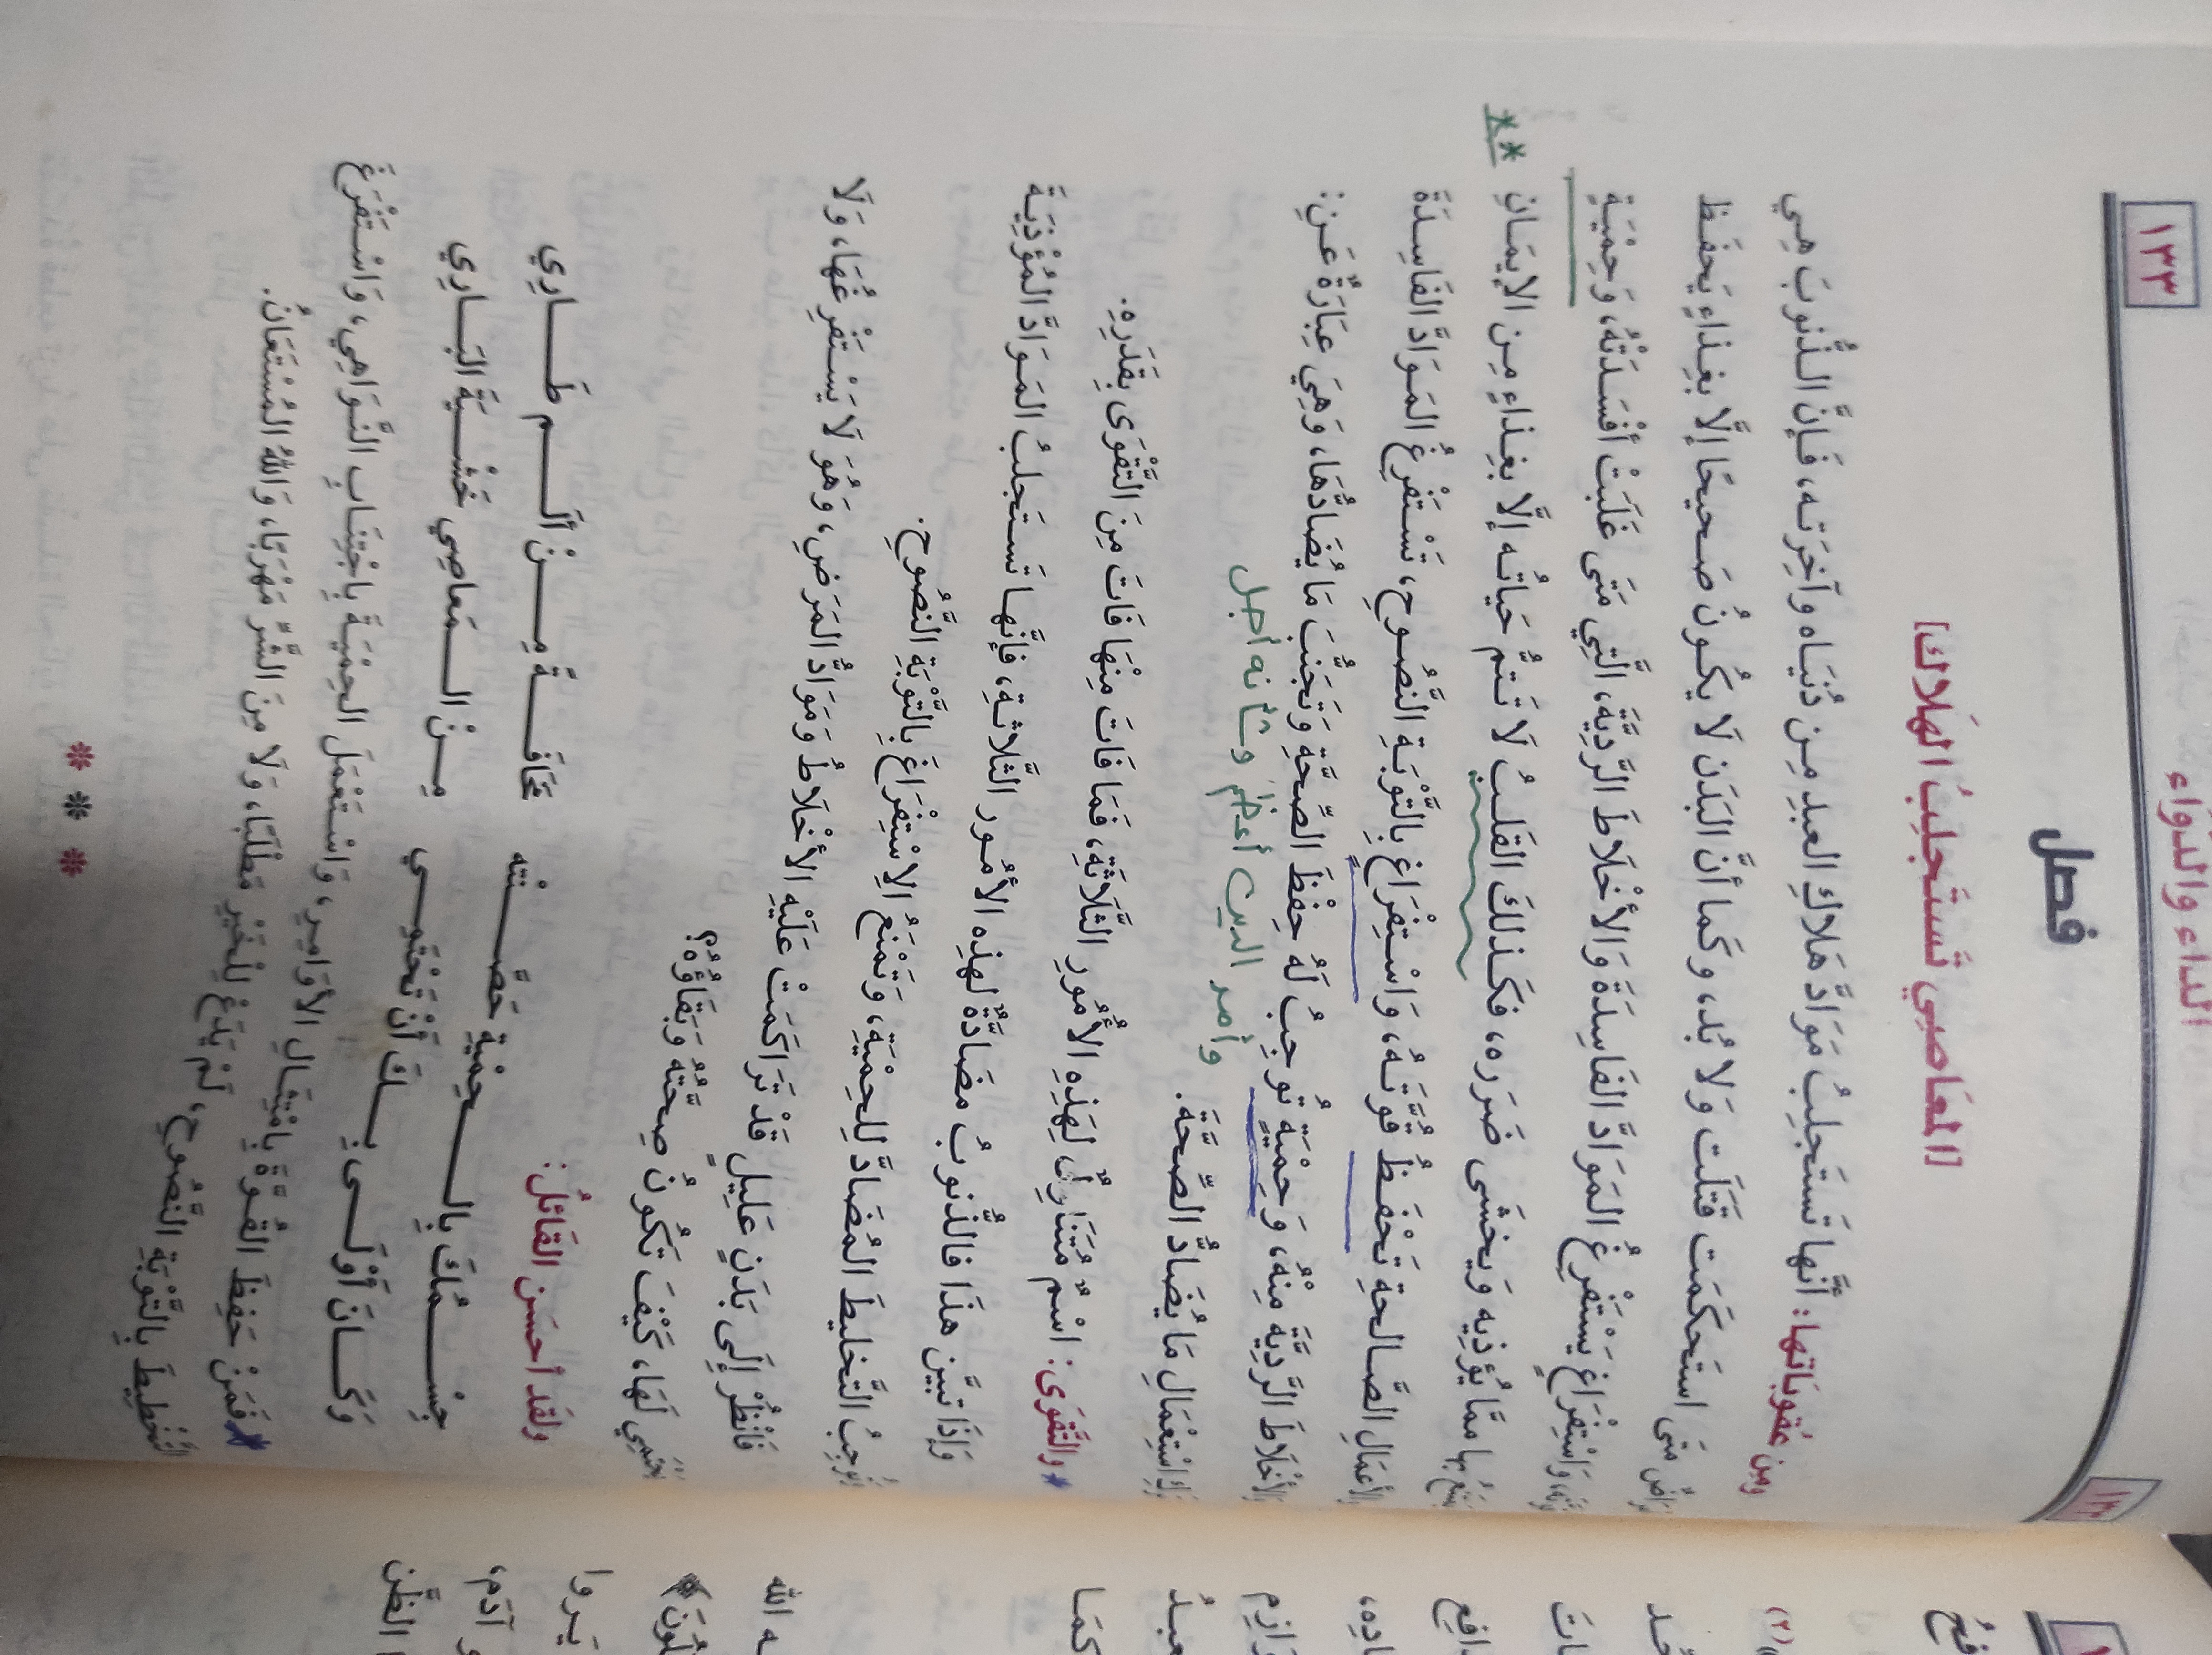 الداء والدواء
١٣٣
فصل
[المعَاصِي تَستَجلِبُ الهَلَاك]
ومِن عُقوبَاتها: أنَّها تَستَجلِبُ مَوَادَّ هَلاكِ العبدِ مِن دُنيَاه وآخِرَتِه، فَإنَّ الذُّنوبَ هِي
أمرَاضٌ مَتَى استَحكَمَت قَتَلَت وَلا بُد، وكَما أنَّ البَدَن لَا يكُونُ صَحيحًا إلَّا بغِذاءٍ يَحفَظ
قوَّتَه، وَاسْتِفْرَاغٍ يَسْتَفْرِغُ المَوَادَّ الفَاسِدَةَ وَالأخْلَاطَ الرَّدِيَّةَ، الَّتِي مَتَى غَلَبَتْ أفْسَدَتْهُ، وَحِمْيَةٍ
يَمتَنعُ بها ممَّا يُؤذِيه وَيخشَى ضَرَره، فكَذلكَ القَلبُ لَا تَتمُّ حَياتُه إلَّا بغِذاءٍ مِن الإيمَانِ **
والأعمَالِ الصَّالحةِ تَحْفَظُ قُوَّتَهُ، وَاسْتِفْرَاغٍ بِالتَّوْبَةِ النَّصُوحِ، تَسْتَفْرِغُ المَوَادَّ الفَاسِدَةَ
وَالأخْلَاطَ الرَّدِيَّةَ مِنْهُ، وَحِمْيَةٍ تُوجِبُ لَهُ حِفْظَ الصِّحَّةِ وَتَجَنُّبَ مَا يُضَادُّهَا، وَهِيَ عِبَارَةٌ عَن:
تَركِ اسْتِعْمَالِ مَا يُضَادُّ الصِّحَّةَ.
وأمر الدين أعظم وشأنه أجل
*والتَّقوَى: اسْمٌ مُتَنَاوِلٌ لِهَذِهِ الأُمُورِ الثَّلَاثَةِ، فَمَا فَاتَ مِنْهَا فَاتَ مِنَ التَّقْوَى بِقَدَرِهِ.
وَإذَا تبيَّن هذَا فالذُّنوبُ مضَادَّةٌ لهذِه الأمُور الثَّلاثةِ، فإنَّها تَستَجلبُ المَوَادَّ المُؤْذِيَةَ
وتُوجِبُ التَّخليطَ المُضَادَّ لِلحِمْيَةِ، وَتَمْنَعُ الِاسْتِفْرَاغَ بِالتَّوْبَةِ النَّصُوحِ.
فَانْظُرْ إِلَى بَدَنٍ عَلِيلٍ قَدْ تَرَاكَمَتْ عَلَيْهِ الأخْلَاطُ وَمَوَادُّ المَرَضِ، وَهُوَ لَا يَسْتَفْرِغُهَا، وَلَا
يَحْتَمِي لَهَا، كَيْفَ تَكُونُ صِحَّتُهُ وَبَقَاؤُهُ؟
ولَقد أحسَن القَائلُ:
جِسْمُكَ بِالحِمْيَةِ حَصَّنْتَه مَخَافَةً مِنْ أَلَمٍ طَارِي
وَكَانَ أَوْلَى بِكَ أَنْ تَحْتَمِي مِنَ المَعَاصِي خَشْيَةَ البَارِي
*فَمَنْ حَفِظَ القُوَّةَ بِامْتِثَالِ الأوَامِرِ، وَاسْتَعْمَلَ الحِمْيَةَ بِاجْتِنَابِ النَّوَاهِي، وَاسْتَفْرَغَ
التَّخْلِيطَ بِالتَّوْبَةِ النَّصُوحِ، لَمْ يَدَعْ لِلْخَيْرِ مَطْلَبًا، وَلَا مِنَ الشَّرِّ مَهْرَبًا، وَاللهُ المُسْتَعَانُ.
* * *